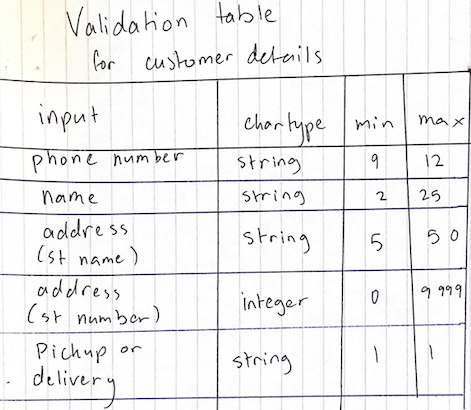 Validation table
for customer details
input chartype min max
phone number string 9 12
name string 2 25
address
(st name) string 5 50
address
(st number) integer 0 9 999
Pickup or
delivery string 1 1